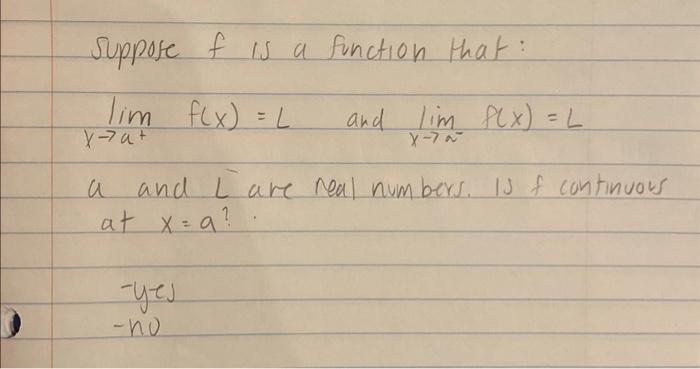 Suppose f is a function that:
lim f(x) = L and lim f(x) = L
x→a+ x→a-
a and L are real numbers. Is f continuous
at x = a?
-yes
-no